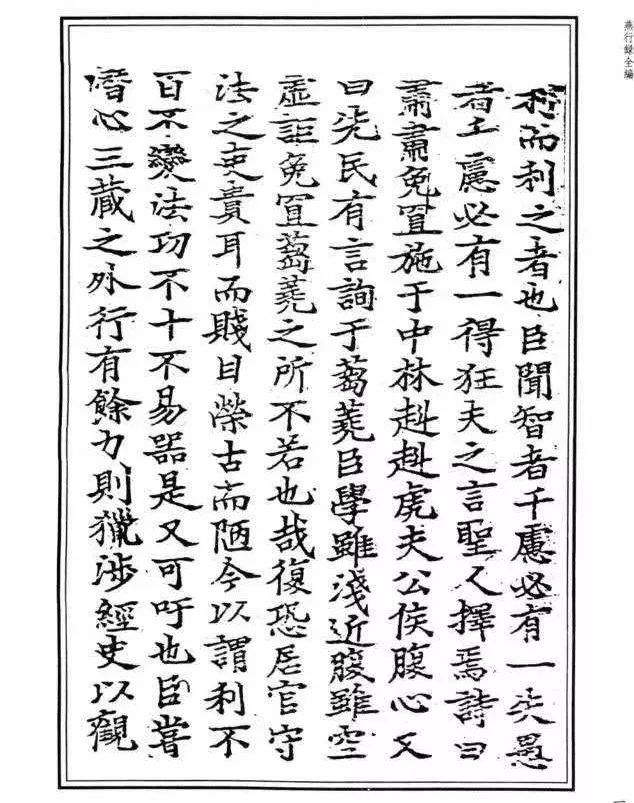 燕行録全編
而利之者也臣聞智者千慮必有一失愚
者千慮必有一得狂夫之言聖人擇焉詩曰
肅肅免罝施于中林赳赳虎夫公侯腹心又
曰先民有言詢于蒭蕘臣學雖淺近腹雖空
虛詎免罝蒭蕘之所不若也哉復恐居官守
法之吏貴耳而賤目榮古而陋今以謂利不
百不變法功不十不易器是又可吁也臣嘗
潛心三藏之外行有餘力則獵涉經史以觀